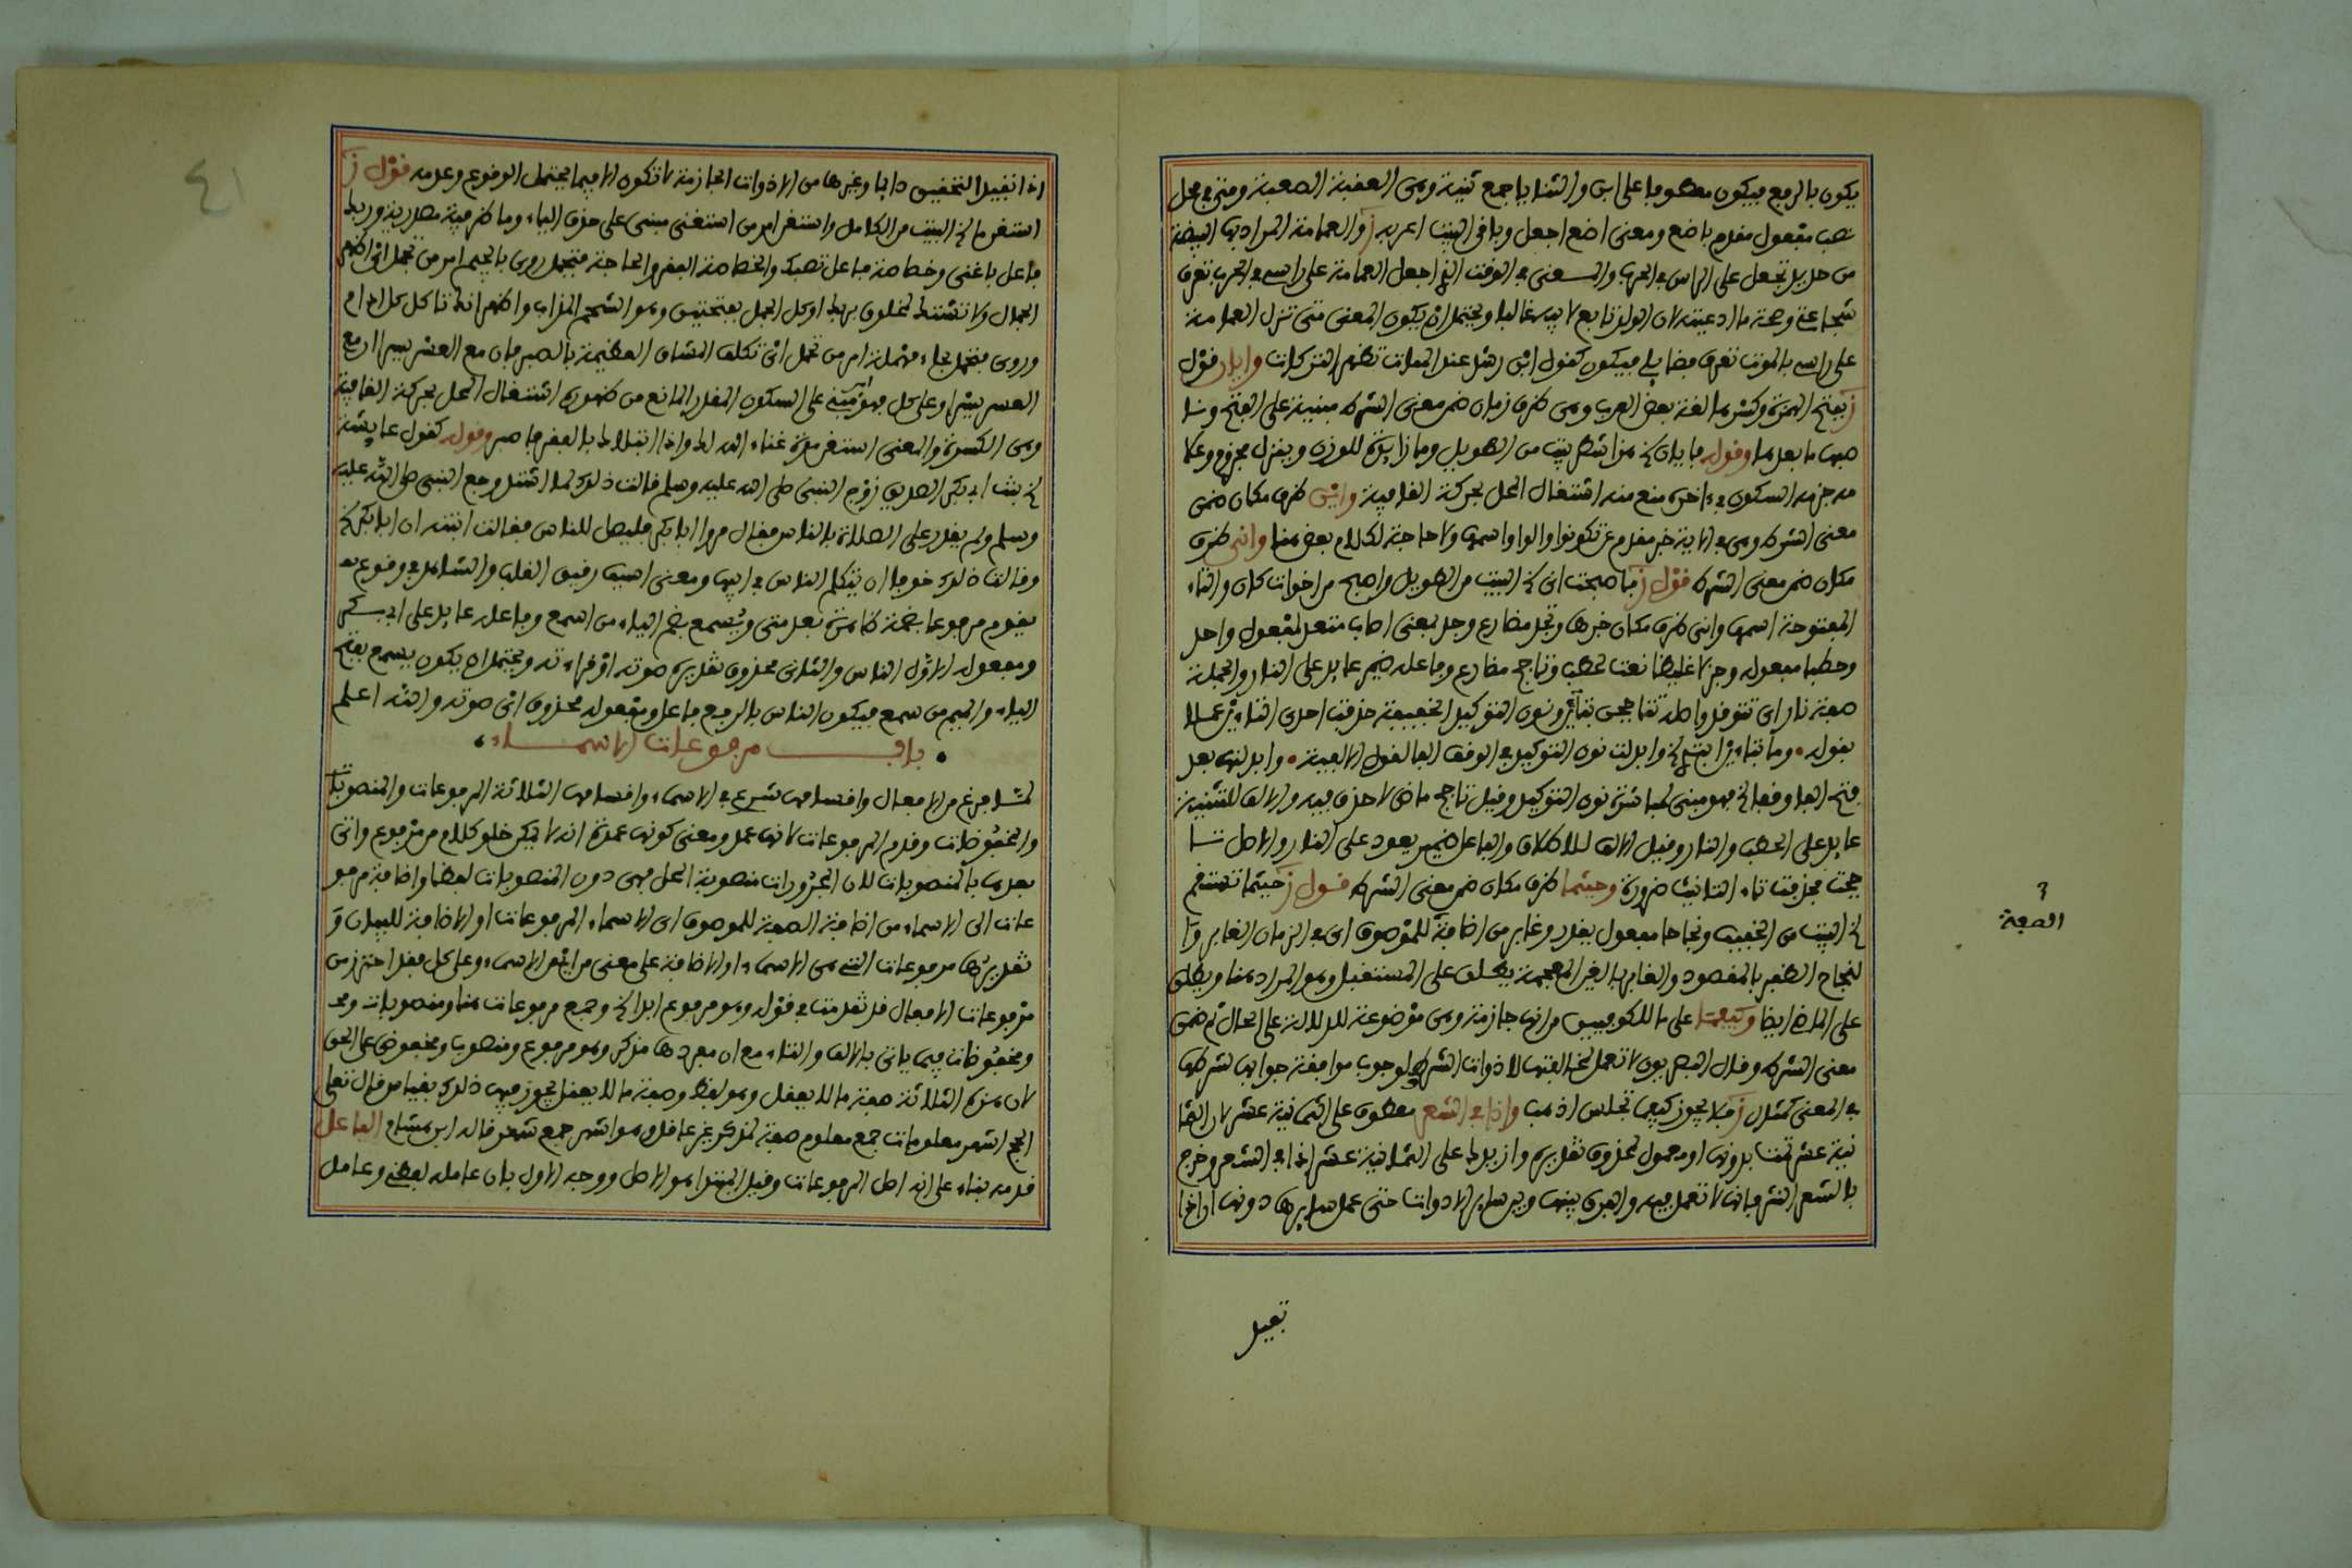 يكون بالرفع فيكون معطوفا على ابن والثنايا جمع ثنية وهي العقبة الصعبة ومتى في محل
نصب مفعول مقدم باضع ومعنى اضع اجعل وباقي البيت اعربه ز والعمامة المراد بها البيضة
من حديد تجعل على الراس في الحرب والمعنى في الوقت الذي اجعل العمامة على راسي في الحرب تعرف
شجاعتي وصحة ما ادعيته لان الولد تابع لابيه غالبا ويحتمل ان يكون المعنى متى تنزل العمامة
على راسي بالموت تعرف فضايلي فيكون كقول ابن رشد عند الممات تظهر التركات وايان قول
ز بفتح الهمزة وكسرها لغة بعض العرب وهي ظرف زمان ضمن معنى الشرط مبنية على الفتح
فيها ما بعدها وقوله فايان هذا شطر بيت من الطويل وما زايدة للوزن وينزل مجزوم وعلا
مة جزمه السكون في اخره منع منه اشتغال المحل بحركة القافية واين ظرف مكان ضمن
معنى الشرط وهي في الاية خبر مقدم عن تكونوا والواو اسمها ولا حاجة لكلام بعض هنا وانى ظرف
مكان ضمن معنى الشرط قول ز فاصبحت انى البيت من الطويل واصبح من اخوات كان والتاء
المفتوحة اسمها وانى ظرف مكان خبرها وتجد مضارع وجد بمعنى اصاب متعد لمفعول واحد
وحطبا مفعوله وجزلا غليظا نعت لحطب وتاجج مضارع وفاعله ضمير عايد على النار والجملة
صفة نارا اى تتوقد واصله تتاججن بتاءين ونون التوكيد الخفيفة حذفت احدى التاءين عملا
بقوله • وما بتاءين ابتدي وابدلت نون التوكيد في الوقف الفا لقول الالفية • وابدلنها بعد
فتح الفا وقفا فهو مبني لمباشرة نون التوكيد وقيل تاجج ماض لا حذف فيه والالف للتثنية
عايد على الحطب والنار وقيل الالف للاطلاق والفاعل ضمير يعود على النار والاصل تا
ججت فحذفت تاء التانيث ضرورة وحيثما ظرف مكان ضمن معنى الشرط قول ز حيثما تستقم
البيت من الخفيف ونجاحا مفعول يقدر وغابر من اضافة للموصوف اى في الزمان الغابر وا
لنجاح الظفر بالمقصود والغابر بالغين المعجمة يطلق على المستقبل وهو المراد هنا ويطلق
على الماضي ايضا وكيفما على ما للكوفيين من انها جازمة وهي موضوعة للدلالة على الحال ثم ضمن
معنى الشرط وقال البصريون لا تعمل لمخالفتها لادوات الشرط لوجوب موافقة جوابها لشرطها
في المعنى كمثال ز فلا يجوز كيفما تجلس اذهب واذا في الشعر معطوف على الثمانية عشر لان الثما
نية عشر تمت بدونها او معمول لمحذوف تقديره وازيد على الثمانية عشر اذا في الشعر وخرج
بالشعر النثر فانها لا تعمل فيه والفرق بينها وبين ساير الادوات حتى عمل سايرها دونها ان اذا
تفيد
الصفة
٤١
اذا تفيد التحقيق دايما وغيرها من الاذوات الجازمة لا تكون الا فيما يحتمل الوقوع وعدمه قول ز
استغن ما البيت من الكامل واستغن امر من استغنى مبني على حذف الياء وما ظرفية مصدرية وربك
فاعل باغنى وخصاصة فاعل تصبك والخصاصة الفقر والحاجة فتجمل روى بالجيم امر من تجمل اى اظهر
الجمال ولا تشتك لمخلوق بربك او كل الجمل بفتحتين وهو الشحم المذاب واظهر انك تاكل كل ادام
وروى فتحمل بحاء مهملة امر من تحمل اى تكلف المشاق العظيمة بالصبر فان مع العسر يسرا ان مع
العسر يسرا وعلى كل فهو مبني على السكون المقدر المانع من ظهوره اشتغال المحل بحركة القافية
وهي الكسرة والمعنى استغن مدة غناء الله لك واذا ابتلاك بالفقر فاصبر وقوله كقول عايشة
بنت ابي بكر الصديق زوج النبي صلى الله عليه وسلم قالت ذلك لما اشتد وجع النبي صلى الله عليه
وسلم ولم يقدر على الصلاة بالناس فقال مروا ابا بكر فليصل للناس فقالت ابنته ان ابا بكر
وقالت ذلك خوفا ان يتكلم الناس في ابيها ومعنى اسيف رقيق القلب والشاهد في وقوع
يقوم مرفوعا بضمة ظاهرة بعد متى ويسمع بضم الياء من اسمع وفاعله عايد على ابي بكر
ومفعوله الاول الناس والثاني محذوف تقديره صوته او قراءته ويحتمل ان يكون يسمع بفتح
الياء والميم من سمع فيكون الناس بالرفع فاعل ومفعوله محذوف اى صوته والله اعلم
• باب مرفوعات الاسماء •
لما فرغ من الافعال واقسامها شرع في الاسماء واقسامها الثلاثة المرفوعات والمنصوبات
والمخفوضات وقدم المرفوعات لانها عمد ومعنى كونها عمدة انه لا يمكن خلو كلام من مرفوع واتى
بعدها بالمنصوبات لان المجرورات منصوبة المحل فهي دون المنصوبات لفظا واضافة مرفو
عات الى الاسماء من اضافة الصفة للموصوف اى الاسماء المرفوعات او الاضافة للبيان و
تقديرها مرفوعات التي هي الاسماء او الاضافة على معنى من اى من الاسماء وعلى كل فقد احترز من
مرفوعات الافعال قد تقدمت في قوله وهو مرفوع ابدا وجمع مرفوعات هنا ومنصوبات
ومخفوضات فيما ياتي بالالف والتاء مع ان مفردها مذكر وهو مرفوع ومنصوب ومخفوض على الحق
لان هذه الثلاثة صفة ما لا يعقل وهو لفظ وصفة ما لا يعقل يجوز فيها ذلك بقياس قال تعلى
الحج اشهر معلومات جمع معلوم صفة لمذكر غير عاقل وهو اشهر جمع شهر قاله ابن هشام الفاعل
قدمه بناء على انه اصل المرفوعات وقيل المبتدا هو الاصل ووجه الاول بان عامله لفظي وعامل